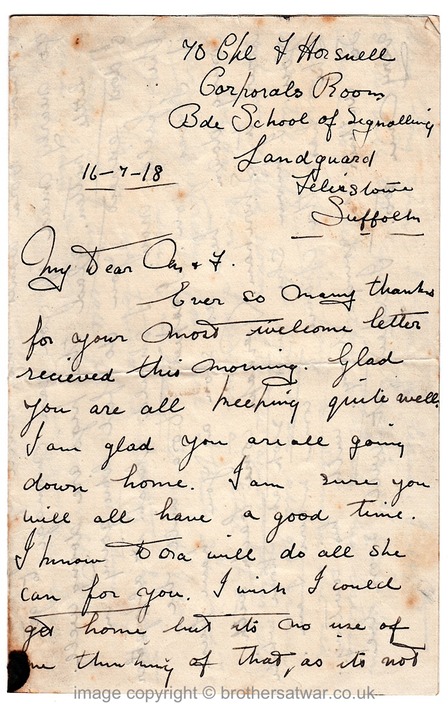 70 Cpl F Horsnell
Corporals Room
Bde School of Signalling
Landguard
Felixstowe
Suffolk
16-7-18
My Dear & F.
Ever so many thanks
for your most welcome letter
recieved this morning. Glad
you are all keeping quite well.
I am glad you are all going
down home. I am sure you
will all have a good time.
I know Dora will do all she
can for you. I wish I could
get home but its no use of
me thinking of that, as its not
image copyright © brothersatwar.co.uk